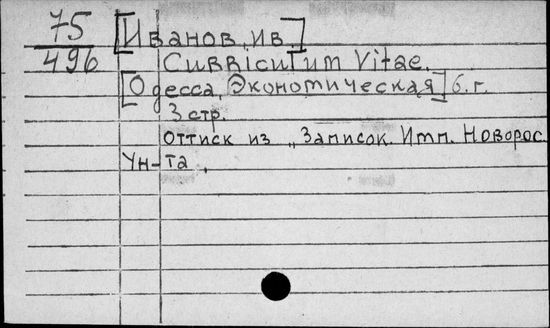 75
496
[Иванов, ив.]
Curriculum Vitae.
[Одесса, Экономическая] б. г.
3 стр.
оттиск из „Записок. Имп. Новорос.
Ун-та.